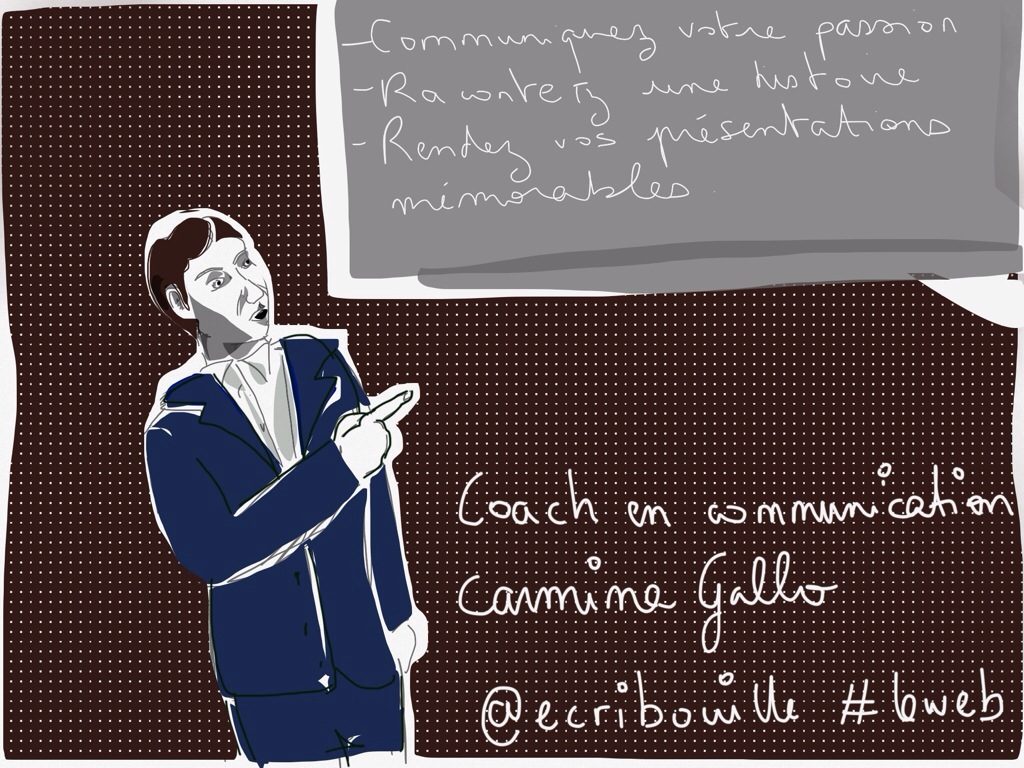 - Communiquez votre passion
- Racontez une histoire
- Rendez vos présentations
mémorables
Coach en communication
Carmine Gallo
@ecribouille #bweb